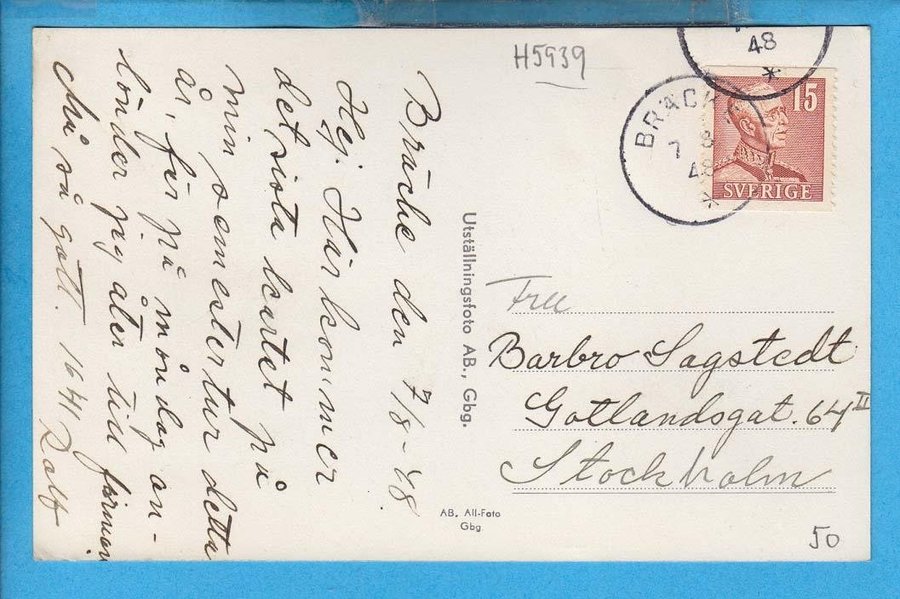 H5939
48
BRÄCKE
7 8
48
15
SVERIGE
Bräcke den 7/8-48.
Hej. Här kommer
det sista kortet på
min semestertur detta
år, för på måndag an-
länder jag åter till firman.
Må så gott. 1641 Rolf
Utställningsfoto AB., Gbg.
AB. All-Foto
Gbg.
Barbro Sagstedt
Gotlandsgat. 64 II
Stockholm
50